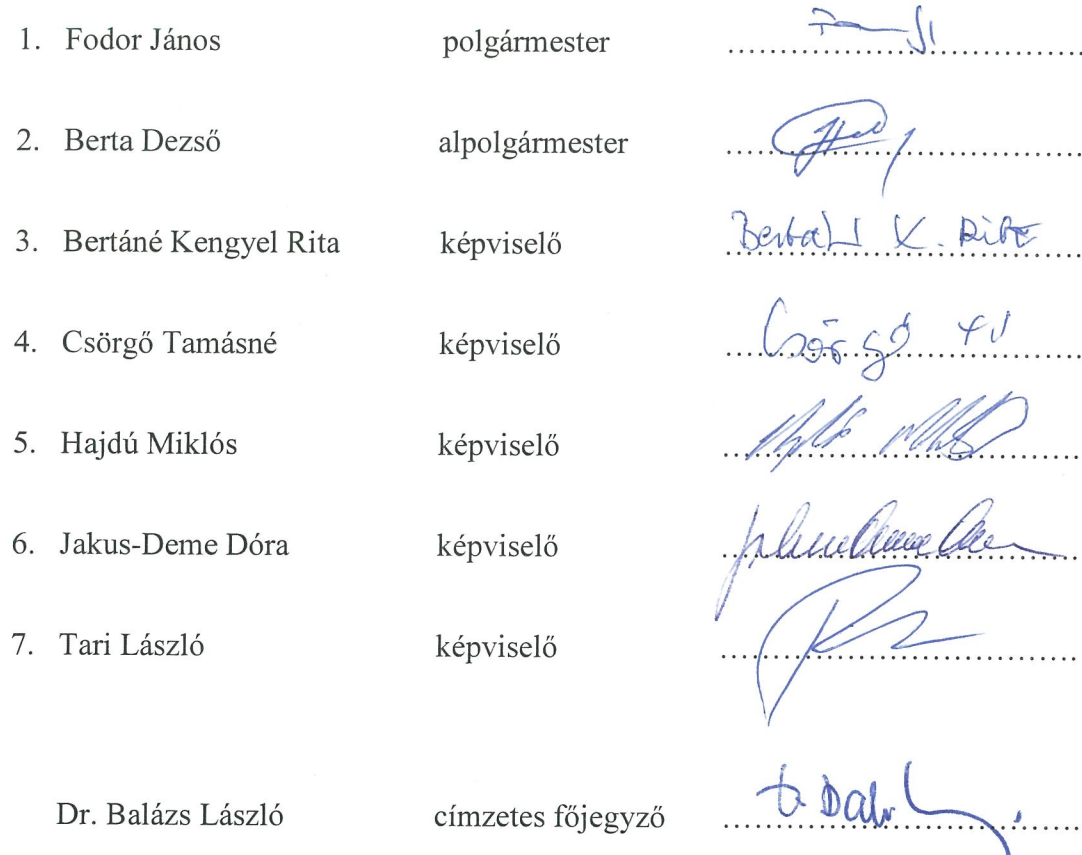 1. Fodor János polgármester
2. Berta Dezső alpolgármester
3. Bertáné Kengyel Rita képviselő K. Rita
4. Csörgő Tamásné képviselő Csörgő
5. Hajdú Miklós képviselő
6. Jakus-Deme Dóra képviselő
7. Tari László képviselő
Dr. Balázs László címzetes főjegyző